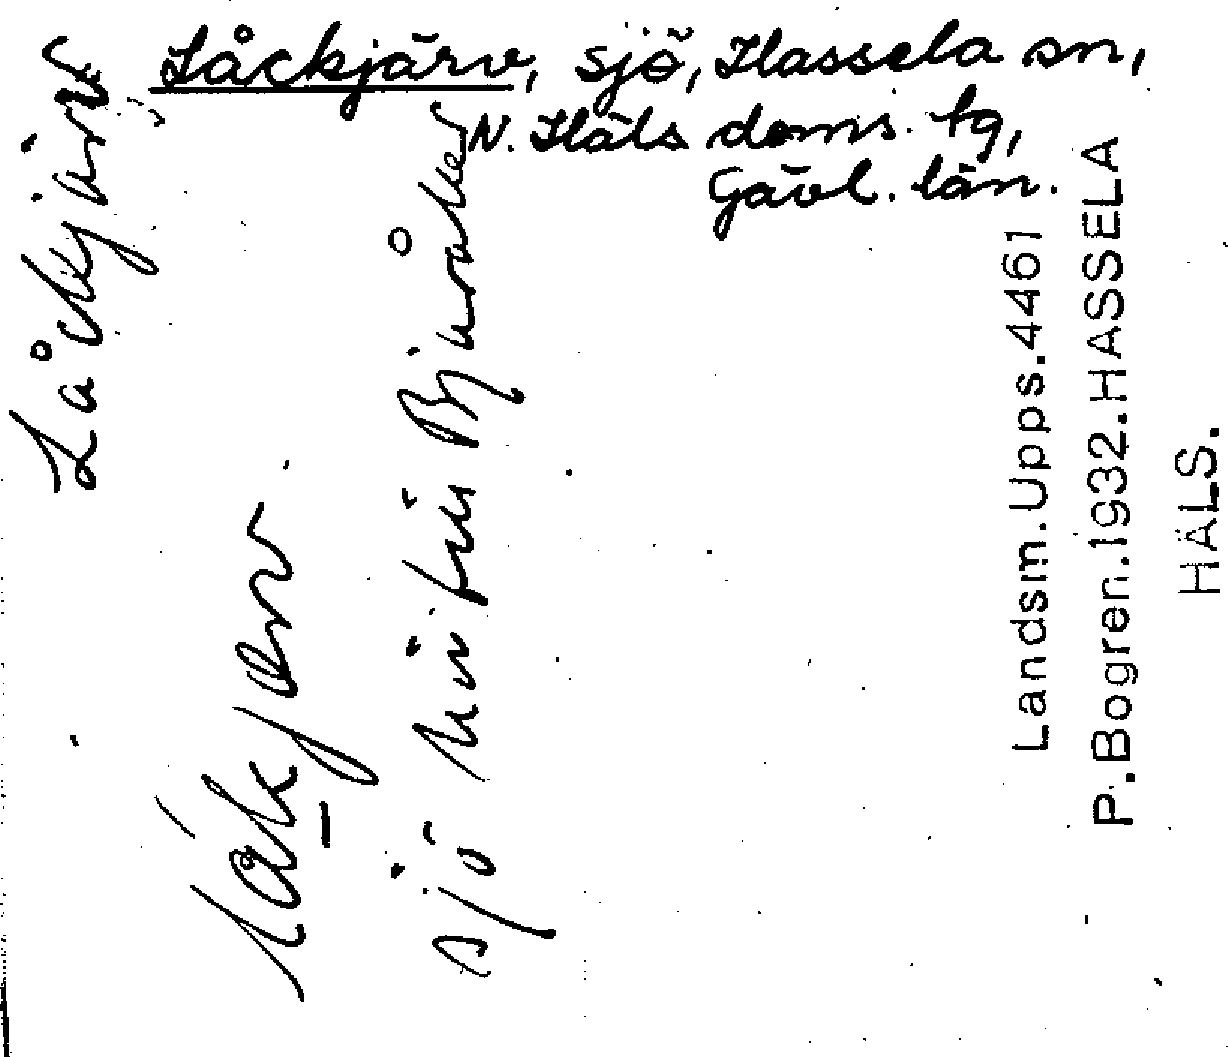 Låckjärv, sjö, Hassela sn,
N. Häls doms. tg,
Gävl. län.
Låckjärv
sjö inifrån Bjuråker
Landsm. Upps. 4461
P. Bogren. 1932. HASSELA
HÄLS.